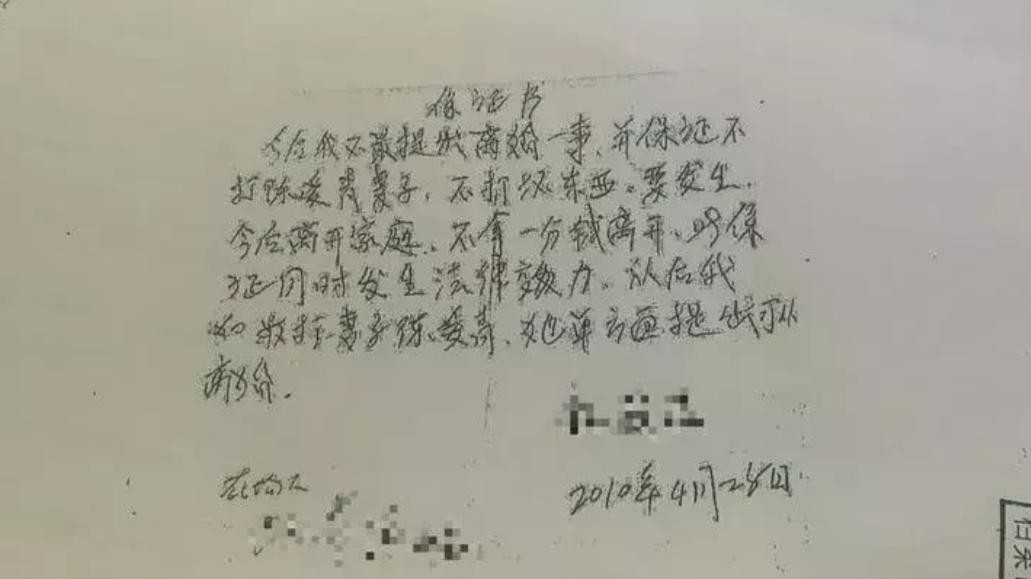 保证书
今后我不最提出离婚一事、并保证不
打陈爱妻子、不打坏东西。要发生、
今后离开家庭、不拿一分钱离开、此保
证同时发生法律效力。从后我
如 妻子陈爱、她单方面提出可以
离婚。
在场人
2010年4月28日